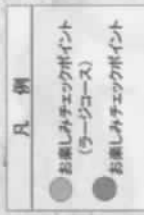 凡 例
お楽しみチェックポイント
(ラージコース)
お楽しみチェックポイント